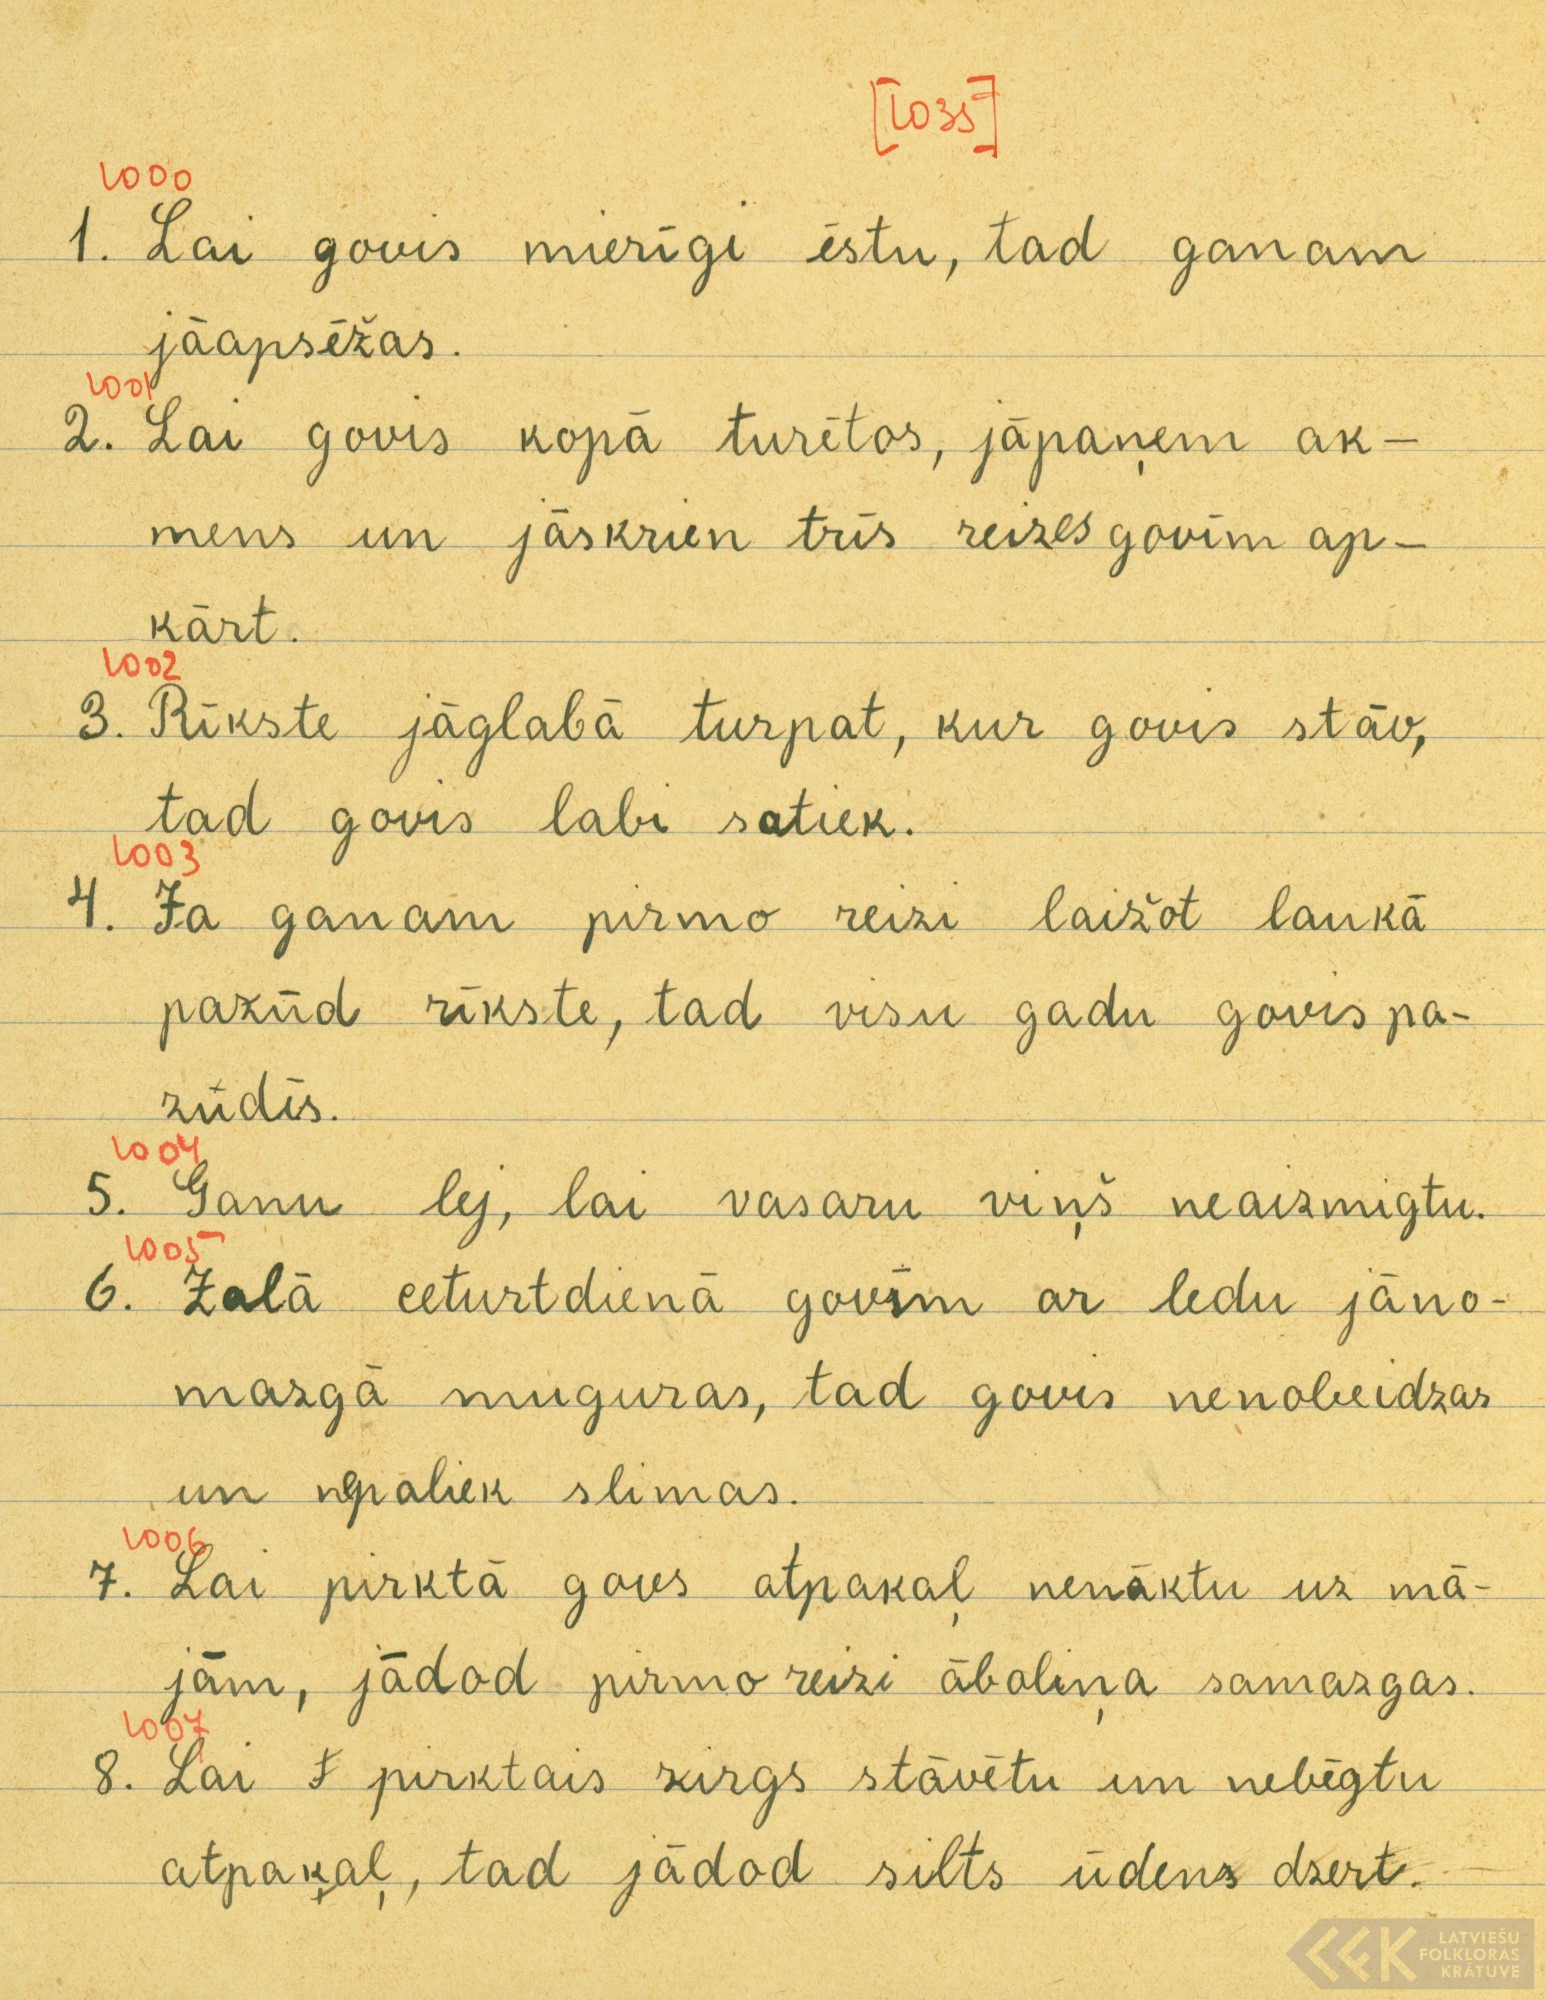 [1035]
1000
1. Lai govis mierīgi ēstu, tad ganam
jāapsēžas.
1001
2. Lai govis kopā turētos, jāpaņem ak-
mens un jāskrien trīs reizes govīm ap-
kārt.
1002
3. Rīkste jāglabā turpat, kur govis stāv,
tad govis labi satiek.
1003
4. Ja ganam pirmo reizi laižot laukā
pazūd rīkste, tad visu gadu govis pa-
zūdīs.
1004
5. Ganu lej, lai vasaru viņš neaizmigtu.
1005
6. Zaļā ceturtdienā govīm ar ledu jāno-
mazgā muguras, tad govis nenobeidzas
un nepaliek slimas.
1006
7. Lai pirktā govs atpakaļ nenāktu uz mā-
jām, jādod pirmo reizi āboliņa samazgas.
1007
8. Lai pirktais zirgs stāvētu un nebēgtu
atpakaļ, tad jādod silts ūdens dzert.
LATVIEŠU
FOLKLORAS
KRĀTUVE